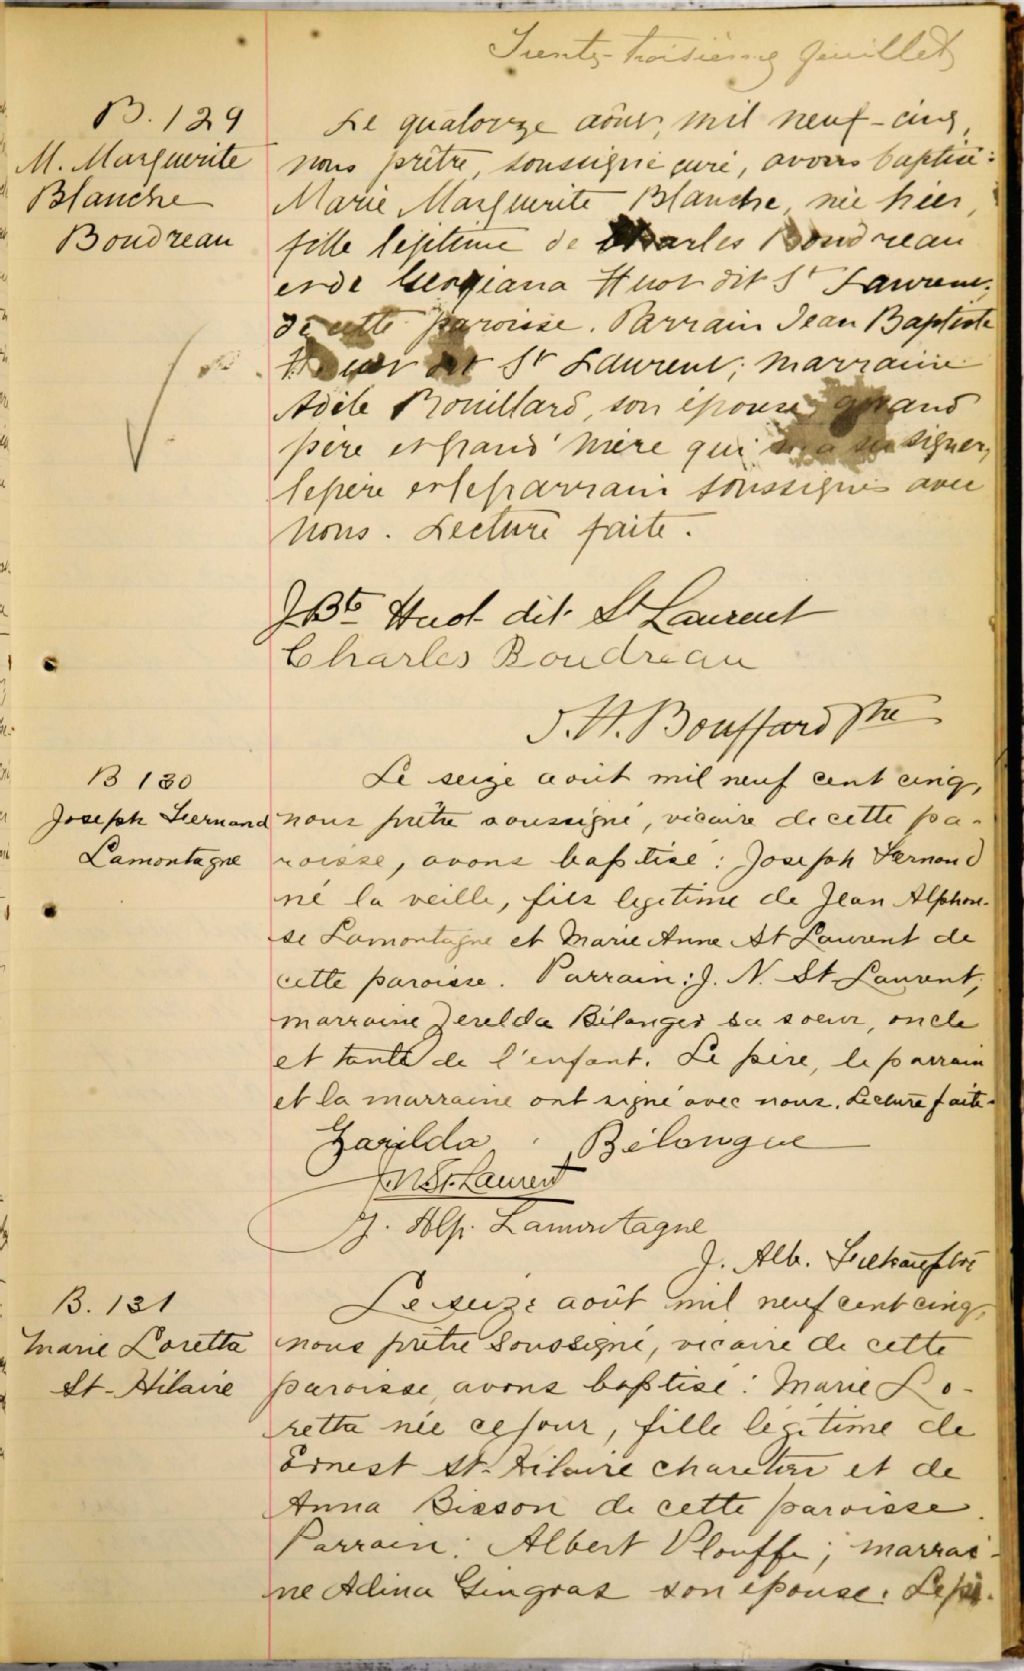 Trente-troisième feuillet
B. 129
M. Marguerite
Blanche
Boudreau
Le quatorze août, mil neuf-cinq,
nous prêtre, soussigné curé, avons baptisé:
Marie Marguerite Blanche, née hier,
fille légitime de Charles Boudreau
et de Georgiana Huot dit St Laurent,
de cette paroisse. Parrain Jean Baptiste
Huot dit St Laurent; marraine
Adèle Rouillard, son épouse, grand
père et grand'mère qui n'a su signer,
le père et le parrain soussignés avec
nous. Lecture faite.
J.Bte Huot dit St Laurent
Charles Boudreau
J. H. Bouffard Ptre
B 130
Joseph Fernand
Lamontagne
Le seize août mil neuf cent cinq,
nous prêtre soussigné, vicaire de cette pa-
roisse, avons baptisé: Joseph Fernand
né la veille, fils legitime de Jean Alphon-
se Lamontagne et Marie Anne St Laurent de
cette paroisse. Parrain: J. N. St-Laurent;
marraine Zerelda Bélanger sa soeur, oncle
et tante de l'enfant. Le père, le parrain
et la marraine ont signé avec nous. Lecture faite.
Zarilda Bélangue
J.N.St.Laurent
J. Alp. Lamontagne
J. Alb.
B. 131
Marie Loretta
St-Hilaire
Le seize août mil neuf cent cinq,
nous prêtre soussigné, vicaire de cette
paroisse avons baptisé: Marie Lo-
retta née ce jour, fille légitime de
Ernest St-Hilaire charetier et de
Anna Bisson de cette paroisse.
Parrain: Albert Plouffe; marrai-
ne Adina Gingras son épouse. Le pè-